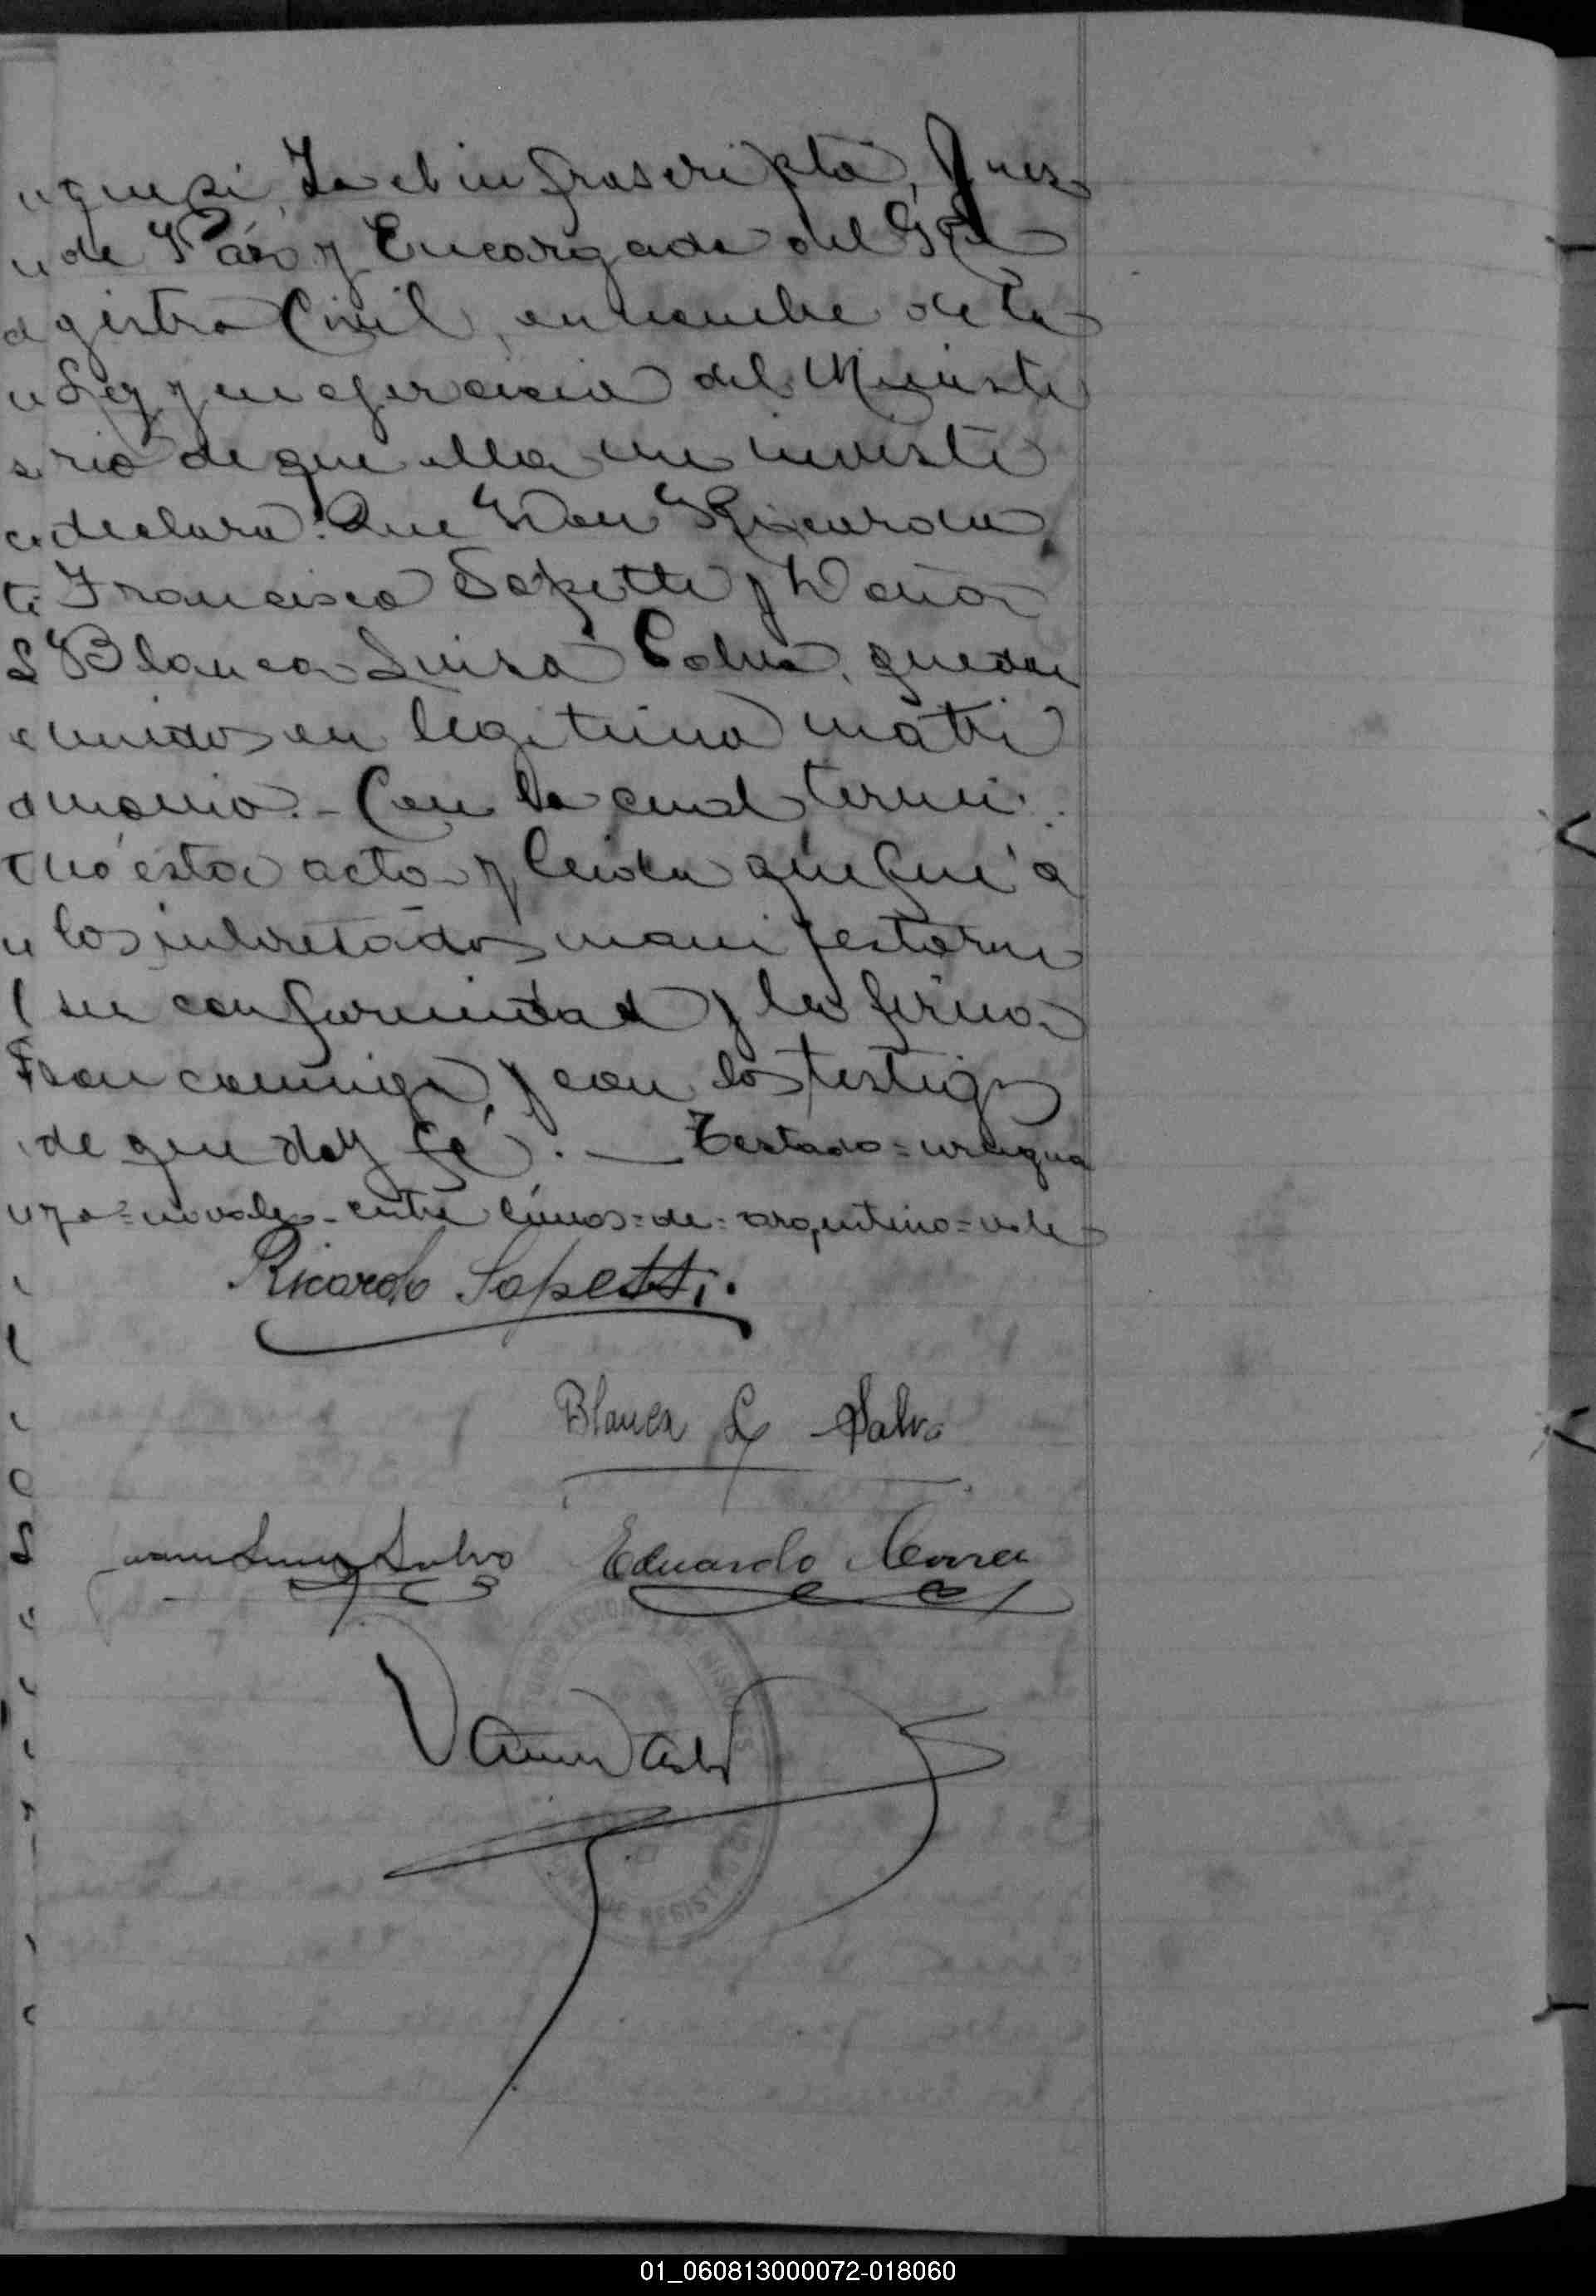 que si, Yo el infrascripto, Juez
de Páz y Encargado del Re
gistro Civil, en nombre de la
Ley y en ejercicio del Ministe
rio de que ella me inviste
declaro: Que Don Ricardo
Francisco Sapetti y Doña
Blanca Luisa Salvo, quedan
unidos en legitimo matri
monio.- Con lo cual termi
nó esta acto y leida que fué a
los interesados manifestaron
su conformidad y la firma
ron conmigo y con los testigos
de que doy fé. — Testado = urugua
yo = no vale - entre lineas = de = argentino = vale
Ricardo Sapetti.
Blanca L Salvo
Juan Salvo Eduardo Correa
TORIO NACIONAL DE MISIONES
DE REGISTRO
01_060813000072-018060